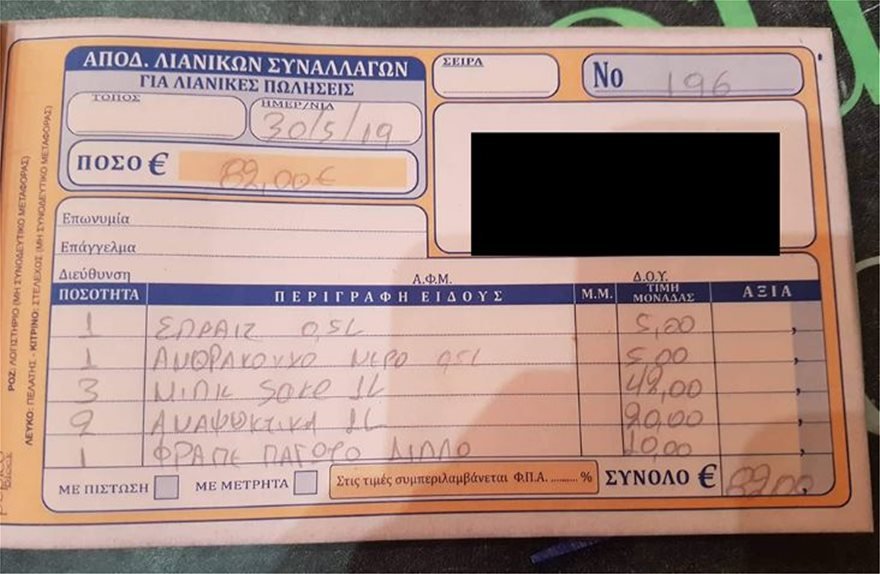 ΑΠΟΔ. ΛΙΑΝΙΚΩΝ ΣΥΝΑΛΛΑΓΩΝ
ΓΙΑ ΛΙΑΝΙΚΕΣ ΠΩΛΗΣΕΙΣ
ΣΕΙΡΑ
Νο 196
ΤΟΠΟΣ
ΗΜΕΡ/ΝΙΑ
30/5/19
ΠΟΣΟ € 82,00€
Επωνυμία
Επάγγελμα
Διεύθυνση Α.Φ.Μ. Δ.Ο.Υ.
ΠΟΣΟΤΗΤΑ ΠΕΡΙΓΡΑΦΗ ΕΙΔΟΥΣ Μ.Μ. ΤΙΜΗ ΜΟΝΑΔΑΣ ΑΞΙΑ
1 ΣΠΡΑΙΤ 0,5L 5,00
1 ΑΝΘΡΑΚΟΥΧΟ ΝΕΡΟ 0,5L 5,00
3 1L 42,00
2 ΑΝΑΨΥΚΤΙΚΑ 1L 20,00
1 ΦΡΑΠΕ ΠΑΓΩΤΟ ΔΙΠΛΟ 10,00
ΜΕ ΠΙΣΤΩΣΗ ΜΕ ΜΕΤΡΗΤΑ Στις τιμές συμπεριλαμβάνεται Φ.Π.Α. .......... % ΣΥΝΟΛΟ € 82,00
ΡΟΖ: ΛΟΓΙΣΤΗΡΙΟ (ΜΗ ΣΥΝΟΔΕΥΤΙΚΟ ΜΕΤΑΦΟΡΑΣ)
ΛΕΥΚΟ: ΠΕΛΑΤΗΣ - ΚΙΤΡΙΝΟ: ΣΤΕΛΕΧΟΣ (ΜΗ ΣΥΝΟΔΕΥΤΙΚΟ ΜΕΤΑΦΟΡΑΣ)